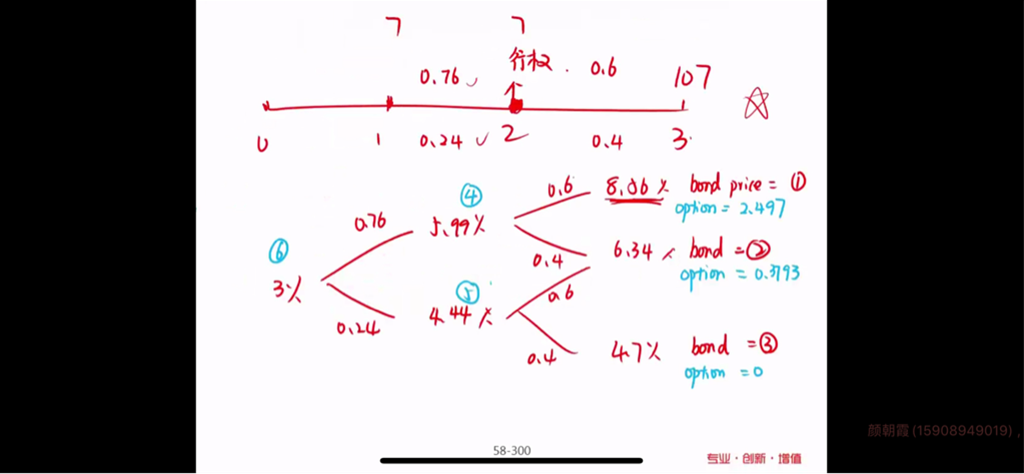 7 7
行权. 0.6 107
0.76 ✓
0 1 0.24 ✓ 2 0.4 3
④ 0.6 8.06% bond price = ①
option = 2.497
0.76 5.99%
⑥ 0.4 6.34% bond = ②
3% ⑤ 0.6 option = 0.3793
0.24 4.44%
0.4 4.7% bond = ③
option = 0
58-300
专业·创新·增值
颜朝霞(15908949019),